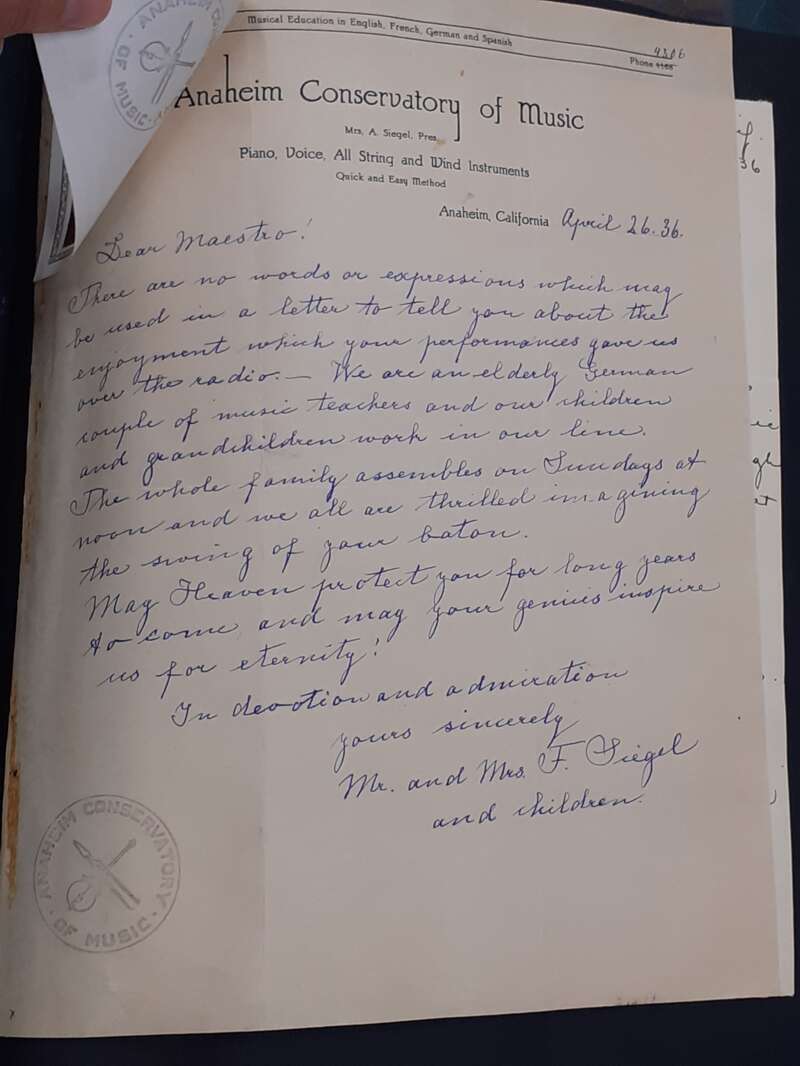 Musical Education in English, French, German and Spanish
4306
Phone
Anaheim Conservatory of Music
Mrs. A. Siegel, Pres.
Piano, Voice, All String and Wind Instruments
Quick and Easy Method
Anaheim, California April 26. 36.
Dear Maestro!
There are no words or expressions which may
be used in a letter to tell you about the
enjoyment which your performances gave us
over the radio. — We are an elderly German
couple of music teachers and our children
and grandchildren work in our line.
The whole family assembles on Sundays at
noon and we all are thrilled imagining
the swing of your baton.
May Heaven protect you for long years
to come and may your genius inspire
us for eternity!
In devotion and admiration
yours sincerely
Mr. and Mrs. F. Siegel
and children.
ANAHEIM CONSERVATORY
OF MUSIC
ANAHEIM
OF MUSIC
36